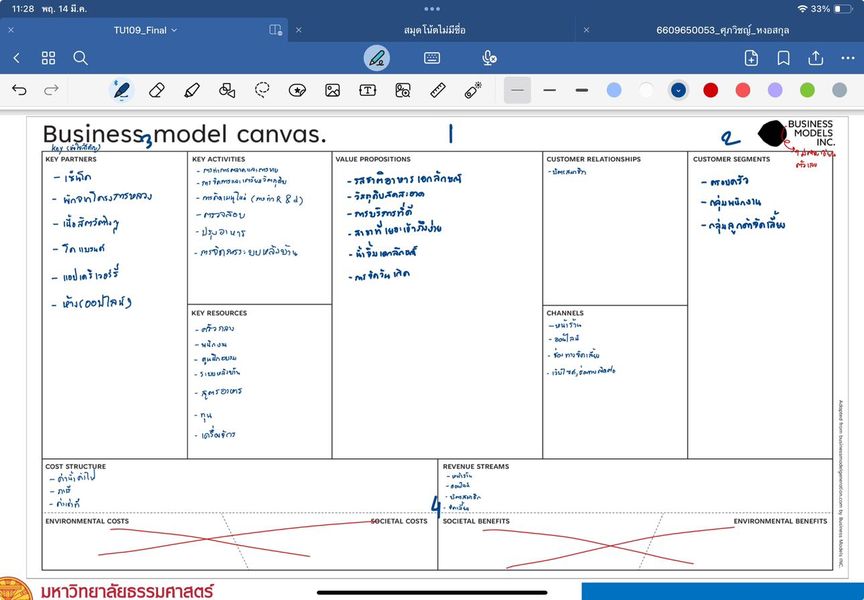 11:28 พฤ. 14 มี.ค.
33%
TU109_Final
สมุดโน้ตไม่มีชื่อ
6609650053_ศุภวิชญ์_หงอสกุล
Business model canvas.
3
1
2
BUSINESS
MODELS
INC.
KEY PARTNERS
- เซ็นโด
- ผักจากโครงการหลวง
- เนื้อสัตว์ต่างๆ
- โคแบรนด์
- แอปเดริเวอร์รี่
- ห้าง(ออฟไลน์)
KEY ACTIVITIES
- การทำการตลาดและการขาย
- การคิดเมนูใหม่ (การทำ R & d)
- ตรวจสอบ
- ปรุงอาหาร
- การจัดการระบบหลังบ้าน
KEY RESOURCES
- ครัวกลาง
- พนักงาน
- ศูนย์ฝึกอบรม
- ระบบหลังบ้าน
- สูตรอาหาร
- ทุน
- เครื่องจักร
VALUE PROPOSITIONS
- รสชาติอาหารเอกลักษณ์
- วัตถุดิบสดสะอาด
- การบริการที่ดี
- สาขาที่เยอะเข้าถึงง่าย
- น้ำจิ้มเอกลักษณ์
- การจัดวันเกิด
CUSTOMER RELATIONSHIPS
- บัตรสมาชิก
CHANNELS
- หน้าร้าน
- ออนไลน์
- ช่องทางจัดเลี้ยง
- เว็บไซต์, ช่องทางติดต่อ
CUSTOMER SEGMENTS
- ครอบครัว
- กลุ่มพนักงาน
- กลุ่มลูกค้าจัดเลี้ยง
COST STRUCTURE
- ค่าน้ำค่าไฟ
- ภาษี
- ค่าเช่าที่
REVENUE STREAMS
- หน้าร้าน
- ออนไลน์
- บัตรสมาชิก
- จัดเลี้ยง
4
ENVIRONMENTAL COSTS
SOCIETAL COSTS
SOCIETAL BENEFITS
ENVIRONMENTAL BENEFITS
Adapted from businessmodelgeneration.com by Business Models INC.
มหาวิทยาลัยธรรมศาสตร์